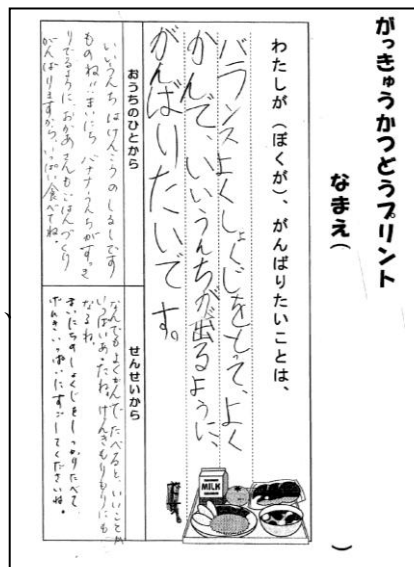 がっきゅうかつどうプリント
なまえ(　　　)
わたしが(ぼくが)、がんばりたいことは、
バランスよくしょくじをもって、よく
かんで、いいうんちが出るように、
がんばりたいです。
です。
MILK
おうちのひとから
いいうんちはけんこうのしるしです
ものね!!まいにち バナナうんちがすっき
りでるように、おかあさんもごはんづくり
がんばりますから、いっぱい食べてね。
せんせいから
なんでもよくかんでたべると、いいことが
いっぱいあったね。けんきもりもりにも
なるね。
まいにちのしょくじをしっかりたべて
げんきいっぱいにすごしてくださいね。